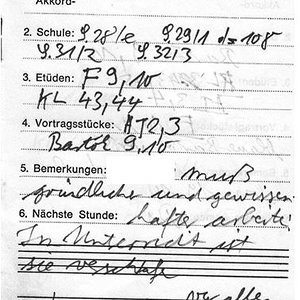 Akkord-
2. Schule: S. 28/e S. 29/1 d = 108
S. 31/2 S. 32/3
3. Etüden: F 9, 10
KL 43, 44
4. Vortragsstücke: AJ 2, 3
Bartók 9, 10
5. Bemerkungen: muß
gründlicher und gewissen-
6. Nächste Stunde: hafter arbeiten
Im Unterricht ist
sie verschlafe
vor allem